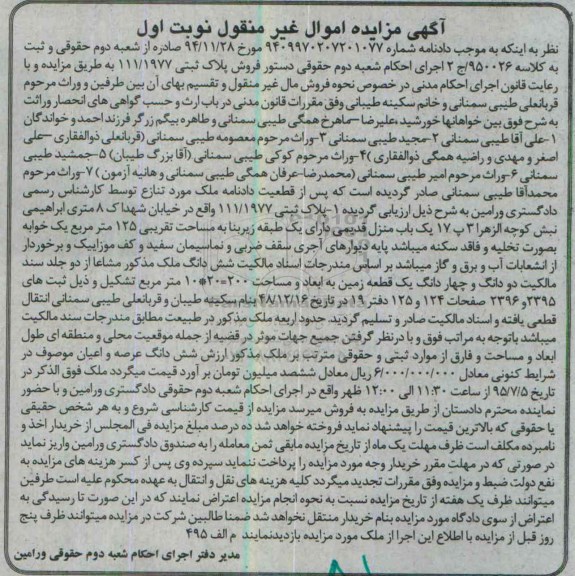 آگهی مزایده اموال غیر منقول نوبت اول
نظر به اینکه به موجب دادنامه شماره ۹۴۰۹۹۷۰۲۰۷۲۰۱۰۷۷ مورخ ۹۴/۱۱/۲۸ صادره از شعبه دوم حقوقی و ثبت
به کلاسه ۹۵۰۰۲۶/ج ۲ اجرای احکام شعبه دوم حقوقی دستور فروش پلاک ثبتی ۱۱۱/۱۹۷۷ به طریق مزایده و با
رعایت قانون اجرای احکام مدنی در خصوص نحوه فروش مال غیر منقول و تقسیم بهای آن بین طرفین و وراث مرحوم
قربانعلی طیبی سمنانی و خانم سکینه طیبانی وفق مقررات قانون مدنی در باب ارث و حسب گواهی های انحصار وراثت
به شرح فوق بین خواهانها خورشید،علیرضا –ماهرخ همگی طیبی سمنانی و طاهره بیگم زرگر فرزند احمد و خواندگان
۱-علی آقا طیبی سمنانی ۲-مجید طیبی سمنانی ۳-وراث مرحوم معصومه طیبی سمنانی (قربانعلی ذوالفقاری –علی
اصغر و مهدی و راضیه همگی ذوالفقاری )۴-وراث مرحوم کوکی طیبی سمنانی (آقا بزرگ طیبان) ۵-جمشید طیبی
سمنانی ۶-وراث مرحوم امیر طیبی سمنانی (محمدرضا-عرفان همگی طیبی سمنانی و هانیه آزمون) ۷-وراث مرحوم
محمدآقا طیبی سمنانی صادر گردیده است که پس از قطعیت دادنامه ملک مورد تنازع توسط کارشناس رسمی
دادگستری ورامین به شرح ذیل ارزیابی گردید ۱-پلاک ثبتی ۱۱۱/۱۹۷۷ واقع در خیابان شهدا ک ۸ متری ابراهیمی
نبش کوچه الزهرا ۳ پ ۱۷ یک باب منزل قدیمی دارای یک طبقه زیربنا به مساحت تقریبی ۱۲۵ متر مربع یک خوابه
بصورت تخلیه و فاقد سکنه میباشد پایه دیوارهای آجری سقف ضربی و نماسیمان سفید و کف موزاییک و برخوردار
از انشعابات آب و برق و گاز میباشد بر اساس مندرجات اسناد مالکیت شش دانگ ملک مذکور مشاعا از دو جلد سند
مالکیت دو دانگ و چهار دانگ یک قطعه زمین به ابعاد و مساحت ۲۰۰=۲۰*۱۰ متر مربع تشکیل و ذیل ثبت های
۲۳۹۵و ۲۳۹۶ صفحات ۱۲۴ و ۱۲۵ دفتر ۱۹ در تاریخ ۴۸/۱۲/۱۶ بنام سکینه طیبان و قربانعلی طیبی سمنانی انتقال
قطعی یافته و اسناد مالکیت صادر و تسلیم گردید. حدود اربعه ملک مذکور در طبیعت مطابق مندرجات سند مالکیت
میباشد باتوجه به مراتب فوق و با درنظر گرفتن جمیع جهات موثر در قضیه از جمله موقعیت محلی و منطقه ای طول
ابعاد و مساحت و فارق از موارد ثبتی و حقوقی مترتب بر ملک مذکور ارزش شش دانگ عرصه و اعیان موصوف در
شرایط کنونی معادل ۶/۰۰۰/۰۰۰/۰۰۰ ریال معادل ششصد میلیون تومان بر آورد قیمت میگردد ملک فوق الذکر در
تاریخ ۹۵/۷/۵ از ساعت ۱۱:۳۰ الی ۱۲:۰۰ ظهر واقع در اجرای احکام شعبه دوم حقوقی دادگستری ورامین و با حضور
نماینده محترم دادستان از طریق مزایده به فروش میرسد مزایده از قیمت کارشناسی شروع و به هر شخص حقیقی
یا حقوقی که بالاترین قیمت را پیشنهاد نماید فروخته خواهد شد ده درصد مبلغ مزایده فی المجلس از خریدار اخذ و
نامبرده مکلف است ظرف مهلت یک ماه از تاریخ مزایده مابقی ثمن معامله را به صندوق دادگستری ورامین واریز نماید
در صورتی که در مهلت مقرر خریدار وجه مورد مزایده را پرداخت ننماید سپرده وی پس از کسر هزینه های مزایده به
نفع دولت ضبط و مزایده وفق مقررات تجدید میگردد کلیه هزینه های نقل و انتقال به عهده محکوم علیه است طرفین
میتوانند ظرف یک هفته از تاریخ مزایده نسبت به نحوه انجام مزایده اعتراض نمایند که در این صورت تا رسیدگی به
اعتراض از سوی دادگاه مورد مزایده بنام خریدار منتقل نخواهد شد ضمنا طالبین شرکت در مزایده میتوانند ظرف پنج
روز قبل از مزایده با اطلاع این اجرا از ملک مورد مزایده بازدیدنمایند م الف ۴۹۵
مدیر دفتر اجرای احکام شعبه دوم حقوقی ورامین